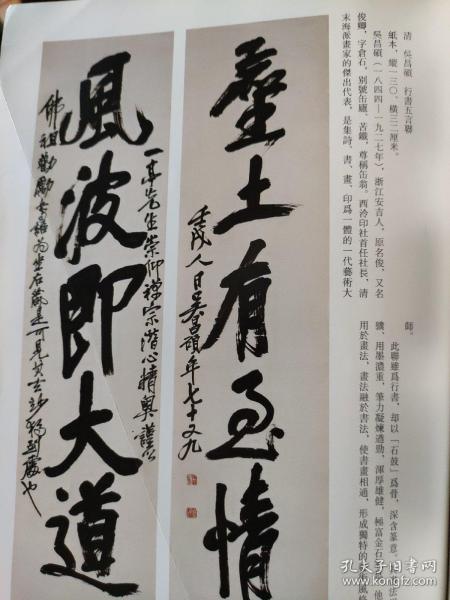 清 吳昌碩 行書五言聯
紙本,縱一三〇、橫三二厘米。
吳昌碩(一八四四—一九二七年),浙江安吉人,原名俊,又名
俊卿,字倉石,別號缶廬、苦鐵,尊稱缶翁。西泠印社首任社長,清
末海派畫家的傑出代表,是集詩、書、畫、印爲一體的一代藝術大
師。
此聯雖爲行書,却以「石鼓」爲骨,深含篆意。
驥,用墨濃重,筆力凝煉遒勁,渾厚雄健,極富金石
用於畫法,畫法融於書法,使書畫相通,形成獨特的
塵土有至情
壬戌人日吳昌碩年七十又九
風波即大道
一亭先生崇仰禪宗潛心精奧謹以
佛祖
孔夫子旧书网